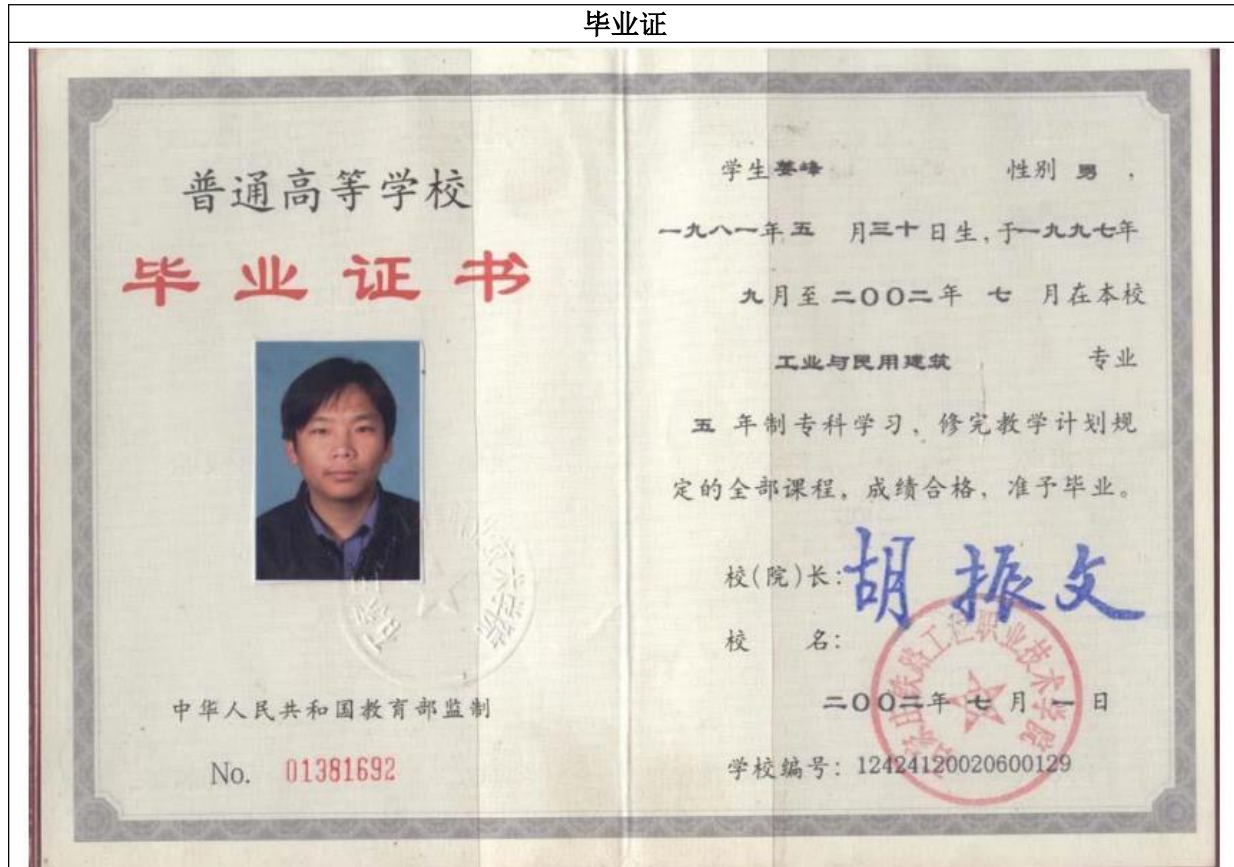 毕业证
普通高等学校
毕业证书
中华人民共和国教育部监制
No. 01381692
学生 峰 性别 男 ,
一九八一年 五 月 三十 日生, 于一九九七年
九月至 二〇〇二年 七 月在本校
工业与民用建筑 专业
五 年制专科学习、修完教学计划规
定的全部课程, 成绩合格, 准予毕业。
校(院)长: 胡振文
校 名:
铁路工程职业技术学院
二〇〇二年 七 月 一 日
学校编号: 12424120020600129